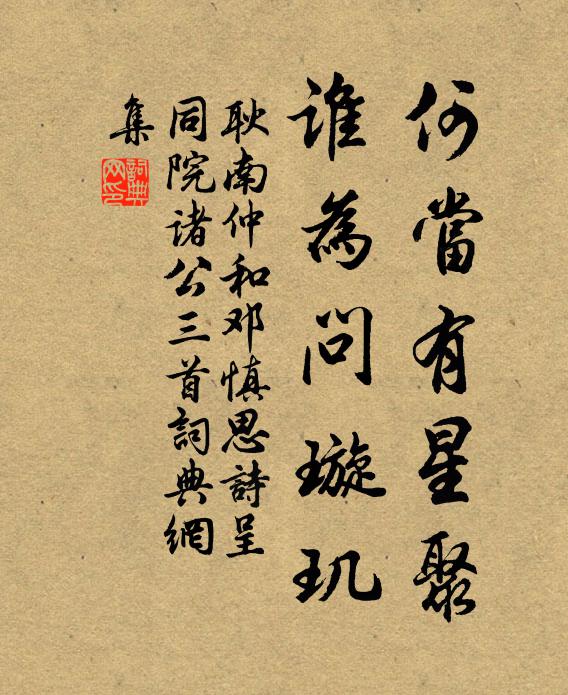 何當有星聚
誰為問璇玑
耿南仲和邓慎思詩呈
同院诸公三首詞典網
集
詞典网印